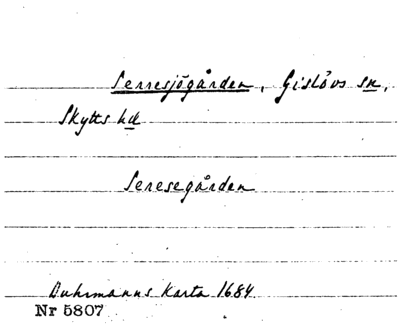 Serresjögården, Gislövs sn,
Skytts hd
Seresegården
Buhrmanns Karta 1684
Nr 5807